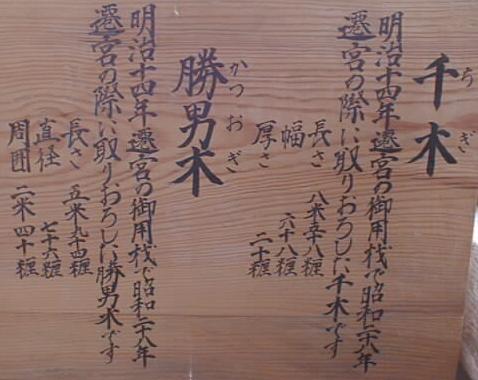 千木
ちぎ
明治十四年遷宮の御用材で昭和二十八年
遷宮の際に取りおろした千木です
長さ 八米五十八糎
幅 六十八糎
厚さ 二十糎
勝男木
かつおぎ
明治十四年遷宮の御用材で昭和二十八年
遷宮の際に取りおろした勝男木です
長さ 五米九十四糎
直径 七十六糎
周囲 二米四十糎